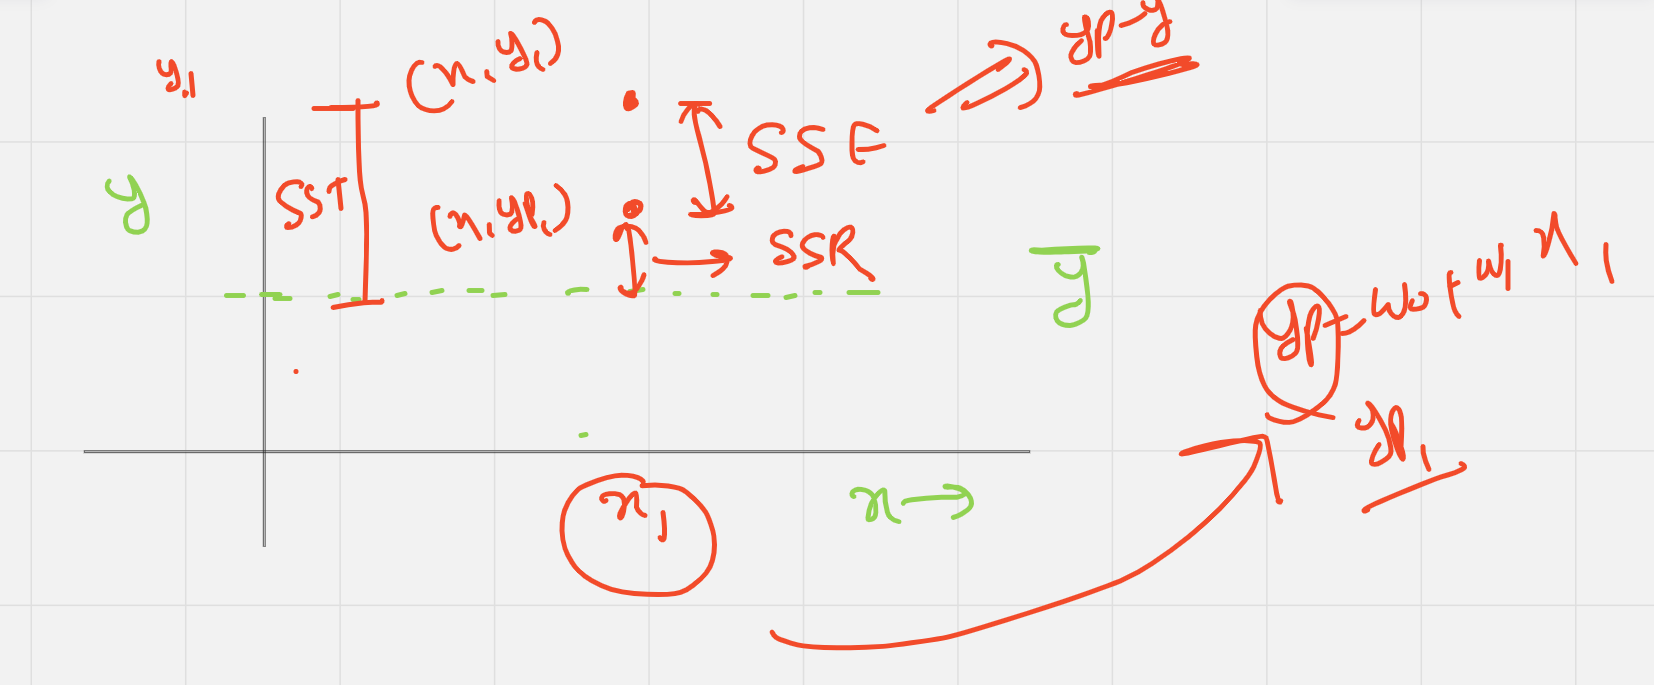 yp-y
y1
(x1, y1)
SSE
y
SST
(x1, yp1)
SSR
y̅
yp = w0 + w1 x1
yp1
x1
x →